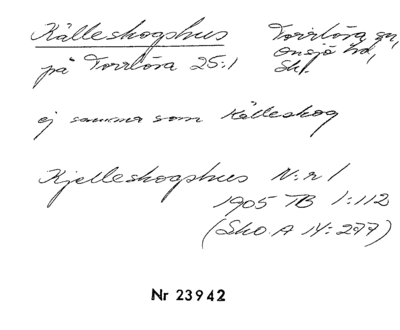 Källeskogshus Torrlösa sn,
på Torrlösa 25:1 Onsjö hd,
Sk.
ej samma som Källeskog
Kjelleskogshus N:r 1
1905 TB 1:112
(Sko. A 14:277)
Nr 23942